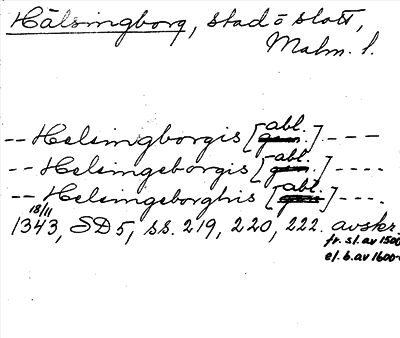 Hälsingborg, stad o slott,
Malm. l.
-- Helsingborgis [abl.] ----
-- Helsingeborgis [abl.] ----
-- Helsingeborghis [abl.] ----
18/11
1343, SD 5, ss. 219, 220, 222. avskr.
fr. sl. av 1500-
el. b. av 1600-